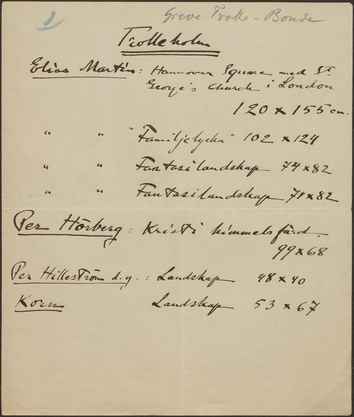 2
Greve Trolle-Bonde
Trolleholm
Elias Martin: Hannover Square med St
George's Church i London
120 x 155 cm.
" " "Familjelycka" 102 x 124
" " Fantasilandskap 74 x 82
" " Fantasilandskap 71 x 82
Per Hörberg: Kristi himmelsfärd.
99 x 68
Per Hilleström d.y.: Landskap 48 x 40
Korn Landskap 53 x 67